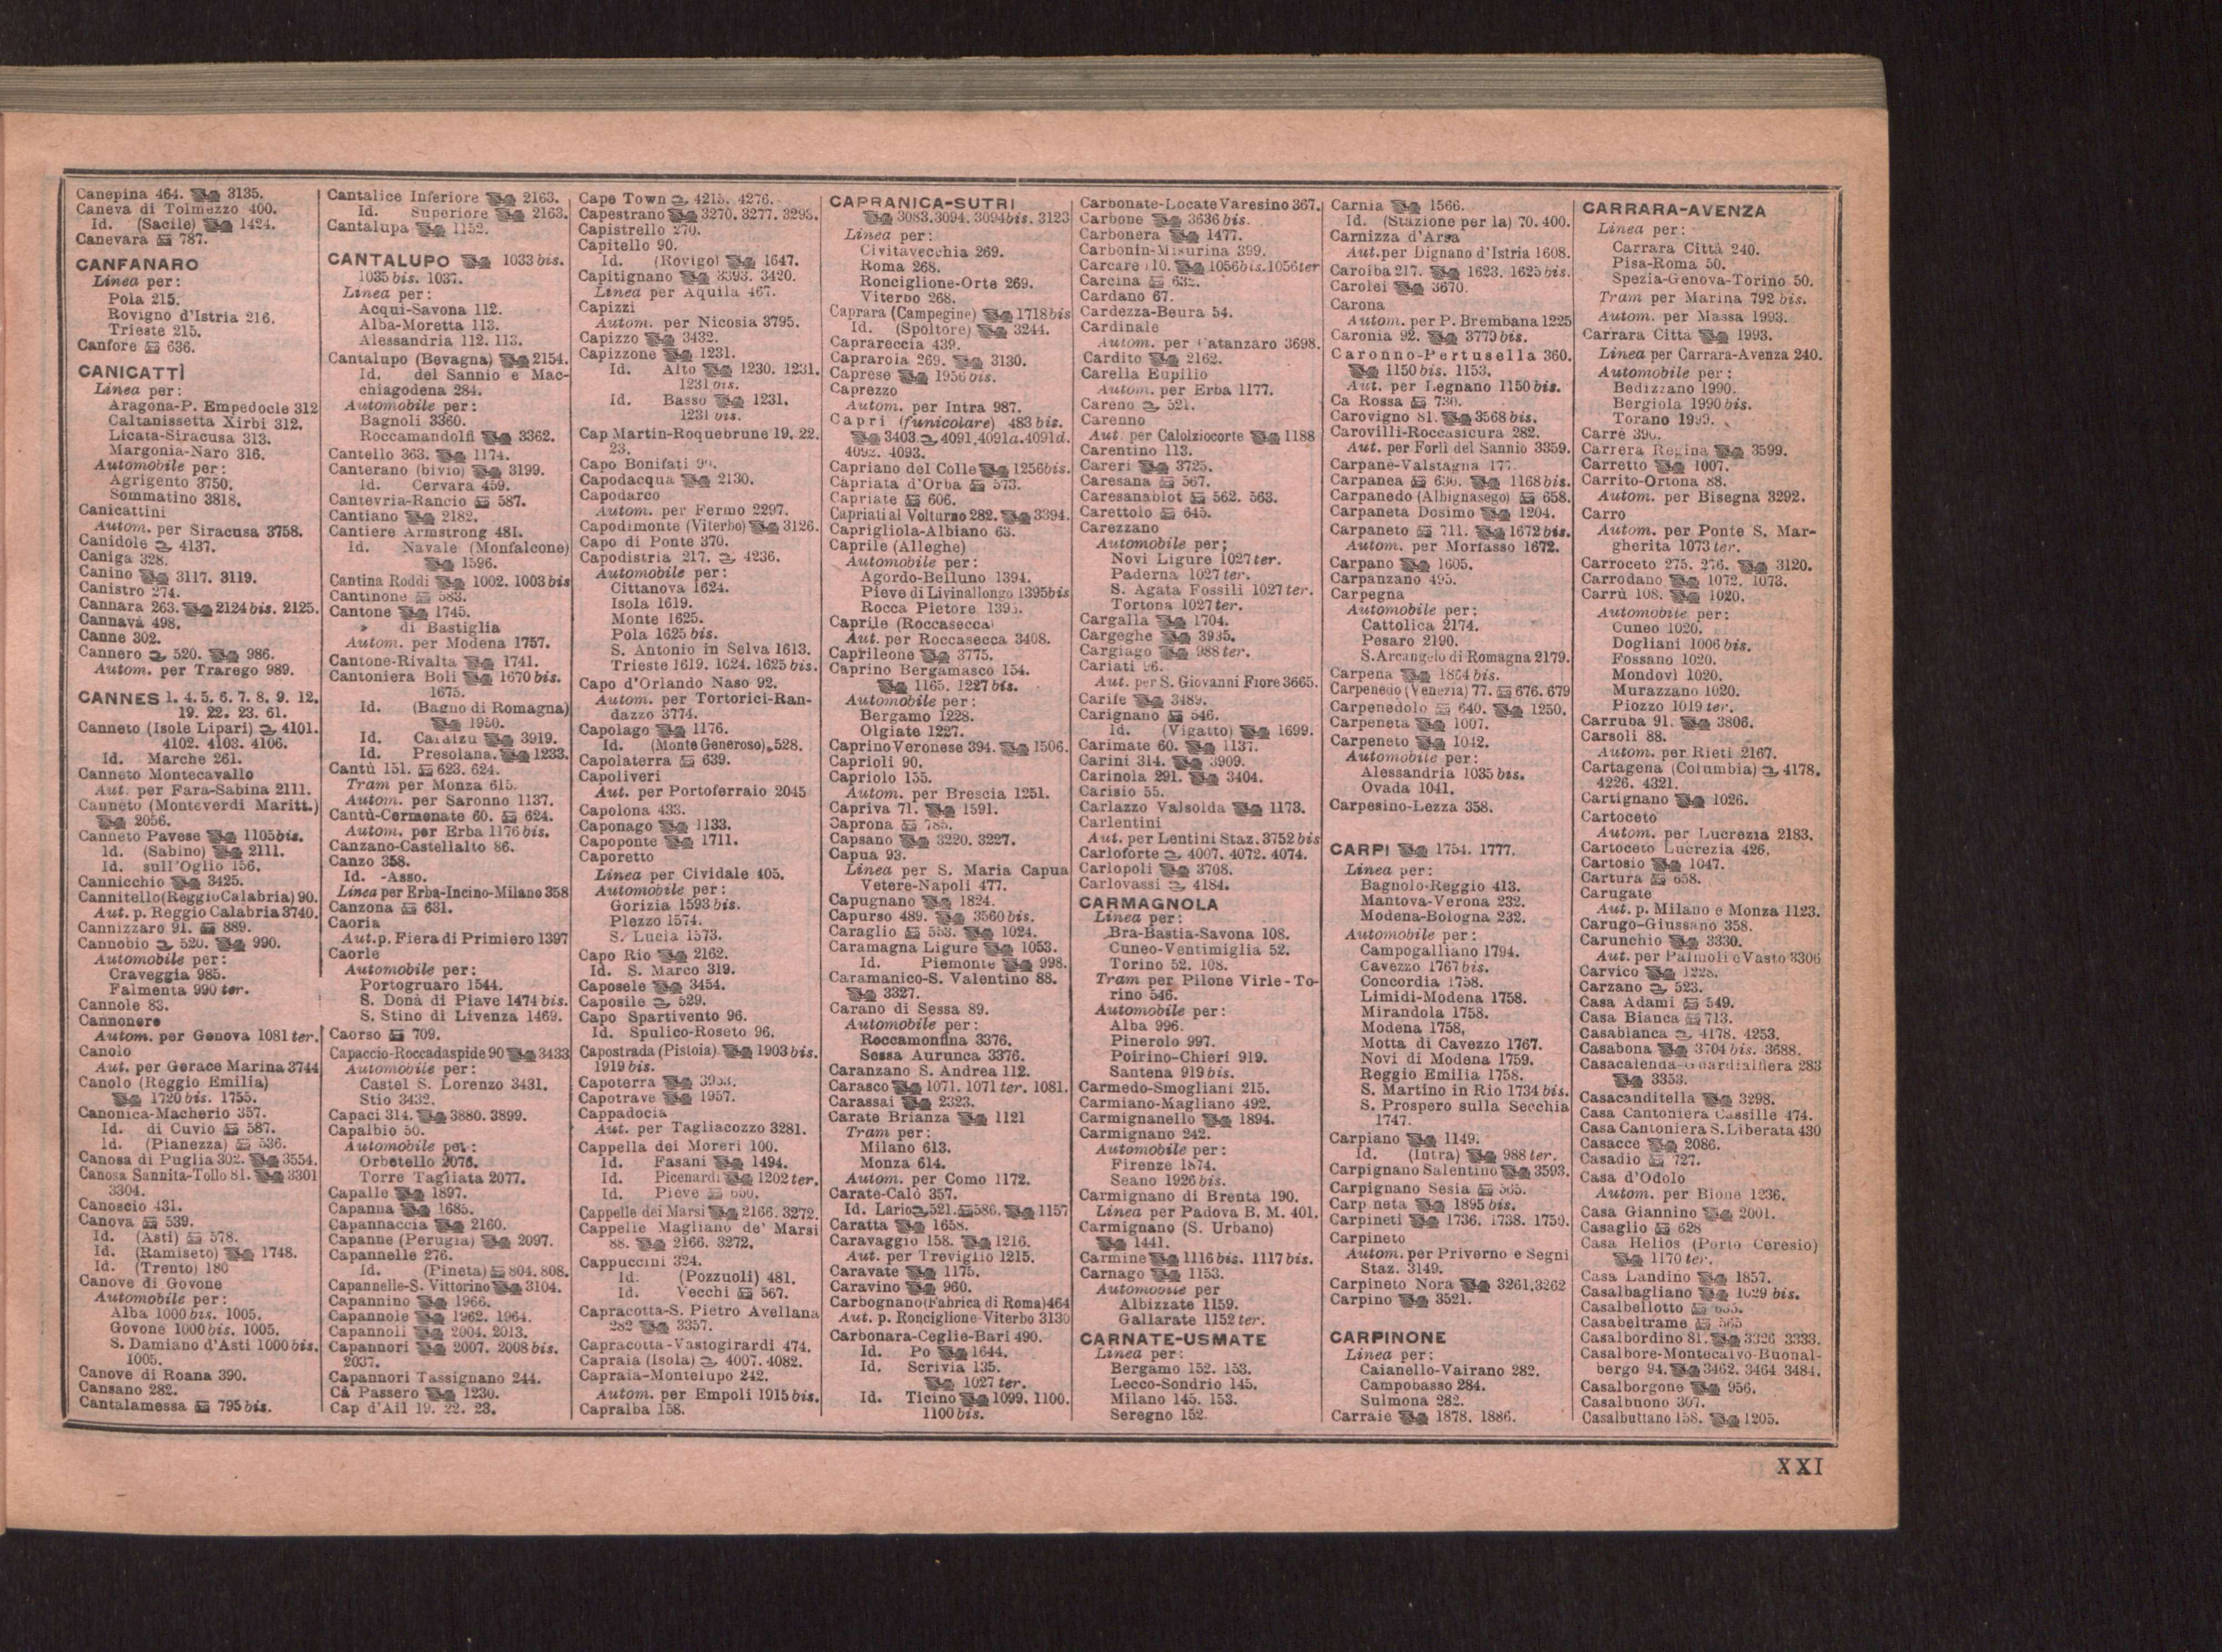 Canepina 464. 3135.
Caneva di Tolmezzo 400.
Id. (Sacile) 1424.
Canevara 787.
CANFANARO
Linea per:
Pola 215.
Rovigno d'Istria 216.
Trieste 215.
Canfore 636.
CANICATTÌ
Linea per:
Aragona-P. Empedocle 312
Caltanissetta Xirbi 312.
Licata-Siracusa 313.
Margonia-Naro 316.
Automobile per:
Agrigento 3750.
Sommatino 3818.
Canicattini
Autom. per Siracusa 3758.
Canidole 4137.
Caniga 328.
Canino 3117. 3119.
Canistro 274.
Cannara 263. 2124 bis. 2125.
Cannavà 498.
Canne 302.
Cannero 520. 986.
Autom. per Trarego 989.
CANNES 1. 4. 5. 6. 7. 8. 9. 12.
19. 22. 23. 61.
Canneto (Isole Lipari) 4101.
4102. 4103. 4106.
Id. Marche 261.
Canneto Montecavallo
Aut. per Fara-Sabina 2111.
Canneto (Monteverdi Maritt.)
2056.
Canneto Pavese 1105bis.
Id. (Sabino) 2111.
Id. sull'Oglio 156.
Cannicchio 3425.
Cannitello (Reggio Calabria) 90.
Aut. p. Reggio Calabria 3740.
Cannizzaro 91. 889.
Cannobio 520. 990.
Automobile per:
Craveggia 985.
Falmenta 990 ter.
Cannole 83.
Cannonero
Autom. per Genova 1081 ter.
Canolo
Aut. per Gerace Marina 3744
Canolo (Reggio Emilia)
1720 bis. 1755.
Canonica-Macherio 357.
Id. di Cuvio 587.
Id. (Pianezza) 536.
Canosa di Puglia 302. 3554.
Canosa Sannita-Tollo 81. 3301
3304.
Canoscio 431.
Canova 539.
Id. (Asti) 578.
Id. (Ramiseto) 1748.
Id. (Trento) 180
Canove di Govone
Automobile per:
Alba 1000 bis. 1005.
Govone 1000 bis. 1005.
S. Damiano d'Asti 1000 bis.
1005.
Canove di Roana 390.
Cansano 282.
Cantalamessa 795 bis.
Cantalice Inferiore 2163.
Id. Superiore 2163.
Cantalupa 1152.
CANTALUPO 1033 bis.
1035 bis. 1037.
Linea per:
Acqui-Savona 112.
Alba-Moretta 113.
Alessandria 112. 113.
Cantalupo (Bevagna) 2154.
Id. del Sannio e Mac-
chiagodena 284.
Automobile per:
Bagnoli 3360.
Roccamandolfi 3362.
Cantello 363. 1174.
Canterano (bivio) 3199.
Id. Cervara 459.
Cantevria-Rancio 587.
Cantiano 2182.
Cantiere Armstrong 481.
Id. Navale (Monfalcone)
1596.
Cantina Roddi 1002. 1003 bis
Cantinone 583.
Cantone 1745.
» di Bastiglia
Autom. per Modena 1757.
Cantone-Rivalta 1741.
Cantoniera Boli 1670 bis.
1675.
Id. (Bagno di Romagna)
1950.
Id. Caldizu 3919.
Id. Presolana. 1233.
Cantù 151. 623. 624.
Tram per Monza 615.
Autom. per Saronno 1137.
Cantù-Cermenate 60. 624.
Autom. per Erba 1176 bis.
Canzano-Castellalto 86.
Canzo 358.
Id. -Asso.
Linea per Erba-Incino-Milano 358
Canzona 631.
Caoria
Aut. p. Fiera di Primiero 1397
Caorle
Automobile per:
Portogruaro 1544.
S. Donà di Piave 1474 bis.
S. Stino di Livenza 1469.
Caorso 709.
Capaccio-Roccadaspide 90 3433
Automobile per:
Castel S. Lorenzo 3431.
Stio 3432.
Capaci 314. 3880. 3899.
Capalbio 50.
Automobile per:
Orbetello 2076.
Torre Tagliata 2077.
Capalle 1897.
Capanna 1685.
Capannaccia 2160.
Capanne (Perugia) 2097.
Capannelle 276.
Id. (Pineta) 804. 808.
Capannelle-S. Vittorino 3104.
Capannino 1966.
Capannole 1962. 1964.
Capannoli 2004. 2013.
Capannori 2007. 2008 bis.
2037.
Capannori Tassignano 244.
Cà Passero 1230.
Cap d'Ail 19. 22. 23.
Cape Town 4215. 4276.
Capestrano 3270. 3277. 3295.
Capistrello 270.
Capitello 90.
Id. (Rovigo) 1647.
Capitignano 3393. 3420.
Linea per Aquila 467.
Capizzi
Autom. per Nicosia 3795.
Capizzo 3432.
Capizzone 1231.
Id. Alto 1230. 1231.
1231 bis.
Id. Basso 1231.
1231 bis.
Cap Martin-Roquebrune 19. 22.
23.
Capo Bonifati
Capodacqua 2130.
Capodarco
Autom. per Fermo 2297.
Capodimonte (Viterbo) 3126.
Capo di Ponte 370.
Capodistria 217. 4236.
Automobile per:
Cittanova 1624.
Isola 1619.
Monte 1625.
Pola 1625 bis.
S. Antonio in Selva 1613.
Trieste 1619. 1624. 1625 bis.
Capo d'Orlando Naso 92.
Autom. per Tortorici-Ran-
dazzo 3774.
Capolago 1176.
Id. (Monte Generoso) 528.
Capolaterra 639.
Capoliveri
Aut. per Portoferraio 2045
Capolona 433.
Caponago 1133.
Capoponte 1711.
Caporetto
Linea per Cividale 405.
Automobile per:
Gorizia 1593 bis.
Plezzo 1574.
S. Lucia 1573.
Capo Rio 2162.
Id. S. Marco 319.
Caposele 3454.
Caposile 529.
Capo Spartivento 96.
Id. Spulico-Roseto 96.
Capostrada (Pistoia) 1903 bis.
1919 bis.
Capoterra 3953.
Capotrave 1957.
Cappadocia
Aut. per Tagliacozzo 3281.
Cappella dei Moreri 100.
Id. Fasani 1494.
Id. Picenardi 1202 ter.
Id. Pieve
Cappelle dei Marsi 2166. 3272.
Cappelle Magliano de' Marsi
88. 2166. 3272.
Cappuccini 324.
Id. (Pozzuoli) 481.
Id. Vecchi 567.
Capracotta-S. Pietro Avellana
282 3357.
Capracotta-Vastogirardi 474.
Capraia (Isola) 4007. 4082.
Capraia-Montelupo 242.
Autom. per Empoli 1915 bis.
Capralba 158.
CAPRANICA-SUTRI
3083. 3094. 3094bis. 3123
Linea per:
Civitavecchia 269.
Roma 268.
Ronciglione-Orte 269.
Viterbo 268.
Caprara (Campegine) 1718 bis
Id. (Spoltore) 3244.
Caprareccia 439.
Caprarola 269. 3130.
Caprese 1956 bis.
Caprezzo
Autom. per Intra 987.
Capri (funicolare) 483 bis.
3403. 4091. 4091a. 4091d.
4092. 4093.
Capriano del Colle 1256bis.
Capriata d'Orba 573.
Capriate 606.
Capriati al Volturno 282. 3394.
Caprigliola-Albiano 63.
Caprile (Alleghe)
Automobile per:
Agordo-Belluno 1394.
Pieve di Livinallongo 1395bis
Rocca Pietore 1395.
Caprile (Roccasecca)
Aut. per Roccasecca 3408.
Caprileone 3775.
Caprino Bergamasco 154.
1165. 1227 bis.
Automobile per:
Bergamo 1228.
Olgiate 1227.
Caprino Veronese 394. 1506.
Caprioli 90.
Capriolo 155.
Autom. per Brescia 1251.
Capriva 71. 1591.
Caprona 785.
Capsano 3220. 3227.
Capua 93.
Linea per S. Maria Capua
Vetere-Napoli 477.
Capugnano 1824.
Capurso 489. 3560 bis.
Caraglio 553. 1024.
Caramagna Ligure 1053.
Id. Piemonte 998.
Caramanico-S. Valentino 88.
3327.
Carano di Sessa 89.
Automobile per:
Roccamonfina 3376.
Sessa Aurunca 3376.
Caranzano S. Andrea 112.
Carasco 1071. 1071 ter. 1081.
Carassai 2323.
Carate Brianza 1121
Tram per:
Milano 613.
Monza 614.
Autom. per Como 1172.
Carate-Calò 357.
Id. Lario 521. 586. 1157
Caratta 1658.
Caravaggio 158. 1216.
Aut. per Treviglio 1215.
Caravate 1175.
Caravino 960.
Carbognano (Fabrica di Roma) 464
Aut. p. Ronciglione-Viterbo 3130
Carbonara-Ceglie-Bari 490.
Id. Po 1644.
Id. Scrivia 135.
1027 ter.
Id. Ticino 1099. 1100.
1100 bis.
Carbonate-Locate Varesino 367.
Carbone 3636 bis.
Carbonera 1477.
Carbonin-Misurina 399.
Carcare 110. 1056 bis. 1056 ter
Carcina 632.
Cardano 67.
Cardezza-Beura 54.
Cardinale
Autom. per Catanzaro 3698.
Cardito 2162.
Carella Eupilio
Autom. per Erba 1177.
Careno 521.
Carenno
Aut. per Calolziocorte 1188
Carentino 113.
Careri 3725.
Caresana 567.
Caresanablot 562. 563.
Carettolo 645.
Carezzano
Automobile per:
Novi Ligure 1027 ter.
Paderna 1027 ter.
S. Agata Fossili 1027 ter.
Tortona 1027 ter.
Cargalla 1704.
Cargeghe 3935.
Cargiago 988 ter.
Cariati 96.
Aut. per S. Giovanni Fiore 3665.
Carife 3489.
Carignano 546.
Id. (Vigatto) 1699.
Carimate 60. 1137.
Carini 314. 3909.
Carinola 291. 3404.
Carisio 55.
Carlazzo Valsolda 1173.
Carlentini
Aut. per Lentini Staz. 3752 bis
Carloforte 4007. 4072. 4074.
Carlopoli 3708.
Carlovassi 4184.
CARMAGNOLA
Linea per:
Bra-Bastia-Savona 108.
Cuneo-Ventimiglia 52.
Torino 52. 108.
Tram per Pilone Virle-To-
rino 546.
Automobile per:
Alba 996.
Pinerolo 997.
Poirino-Chieri 919.
Santena 919 bis.
Carmedo-Smogliani 215.
Carmiano-Magliano 492.
Carmignanello 1894.
Carmignano 242.
Automobile per:
Firenze 1874.
Seano 1926 bis.
Carmignano di Brenta 190.
Linea per Padova B. M. 401.
Carmignano (S. Urbano)
1441.
Carmine 1116 bis. 1117 bis.
Carnago 1153.
Automobile per
Albizzate 1159.
Gallarate 1152 ter.
CARNATE-USMATE
Linea per:
Bergamo 152. 153.
Lecco-Sondrio 145.
Milano 145. 153.
Seregno 152.
Carnia 1566.
Id. (Stazione per la) 70. 400.
Carnizza d'Arsa
Aut. per Dignano d'Istria 1608.
Caroiba 217. 1623. 1625 bis.
Carolei 3670.
Carona
Autom. per P. Brembana 1225
Caronia 92. 3779 bis.
Caronno-Pertusella 360.
1150 bis. 1153.
Aut. per Legnano 1150 bis.
Ca Rossa 730.
Carovigno 81. 3568 bis.
Carovilli-Roccasicura 282.
Aut. per Forlì del Sannio 3359.
Carpanè-Valstagna 177.
Carpanea 630. 1168 bis.
Carpanedo (Albignasego) 658.
Carpaneta Dosimo 1204.
Carpaneto 711. 1672 bis.
Autom. per Morfasso 1672.
Carpano 1605.
Carpanzano 495.
Carpegna
Automobile per:
Cattolica 2174.
Pesaro 2190.
S. Arcangelo di Romagna 2179.
Carpena 1864 bis.
Carpenedo (Venezia) 77. 676. 679
Carpenedolo 640. 1250.
Carpeneta 1007.
Carpeneto 1042.
Automobile per:
Alessandria 1035 bis.
Ovada 1041.
Carpesino-Lezza 358.
CARPI 1754. 1777.
Linea per:
Bagnolo-Reggio 413.
Mantova-Verona 232.
Modena-Bologna 232.
Automobile per:
Campogalliano 1794.
Cavezzo 1767 bis.
Concordia 1758.
Limidi-Modena 1758.
Mirandola 1758.
Modena 1758,
Motta di Cavezzo 1767.
Novi di Modena 1759.
Reggio Emilia 1758.
S. Martino in Rio 1734 bis.
S. Prospero sulla Secchia
1747.
Carpiano 1149.
Id. (Intra) 988 ter.
Carpignano Salentino 3593.
Carpignano Sesia 565.
Carp neta 1895 bis.
Carpineti 1736. 1738. 1750.
Carpineto
Autom. per Priverno e Segni
Staz. 3149.
Carpineto Nora 3261. 3262
Carpino 3521.
CARPINONE
Linea per:
Caianello-Vairano 282.
Campobasso 284.
Sulmona 282.
Carraie 1878. 1886.
CARRARA-AVENZA
Linea per:
Carrara Città 240.
Pisa-Roma 50.
Spezia-Genova-Torino 50.
Tram per Marina 792 bis.
Autom. per Massa 1993.
Carrara Città 1993.
Linea per Carrara-Avenza 240.
Automobile per:
Bedizzano 1990.
Bergiola 1990 bis.
Torano 1989.
Carrè 390.
Carrera Regina 3599.
Carretto 1007.
Carrito-Ortona 88.
Autom. per Bisegna 3292.
Carro
Autom. per Ponte S. Mar-
gherita 1073 ter.
Carroceto 275. 276. 3120.
Carrodano 1072. 1073.
Carrù 108. 1020.
Automobile per:
Cuneo 1020.
Dogliani 1006 bis.
Fossano 1020.
Mondovì 1020.
Murazzano 1020.
Piozzo 1019 ter.
Carruba 91. 3806.
Carsoli 88.
Autom. per Rieti 2167.
Cartagena (Columbia) 4178.
4226. 4321.
Cartignano 1026.
Cartoceto
Autom. per Lucrezia 2183.
Cartoceto Lucrezia 426.
Cartosio 1047.
Cartura 658.
Carugate
Aut. p. Milano e Monza 1123.
Carugo-Giussano 358.
Carunchio 3330.
Aut. per Palmoli e Vasto 3306
Carvico 1228.
Carzano 523.
Casa Adami 549.
Casa Bianca 713.
Casabianca 4178. 4253.
Casabona 3704 bis. 3688.
Casacalenda-Guardialfiera 283
3353.
Casacanditella 3298.
Casa Cantoniera Cassille 474.
Casa Cantoniera S. Liberata 430
Casacce 2086.
Casadio 727.
Casa d'Odolo
Autom. per Bione 1236.
Casa Giannino 2001.
Casaglio 628
Casa Helios (Porto Ceresio)
1170 ter.
Casa Landino 1857.
Casalbagliano 1029 bis.
Casalbellotto
Casabeltrame 565
Casalbordino 81. 3326 3333.
Casalbore-Montecalvo-Buonal-
bergo 94. 3462. 3464 3484.
Casalborgone 956.
Casalbuono 307.
Casalbuttano 158. 1205.
XXI